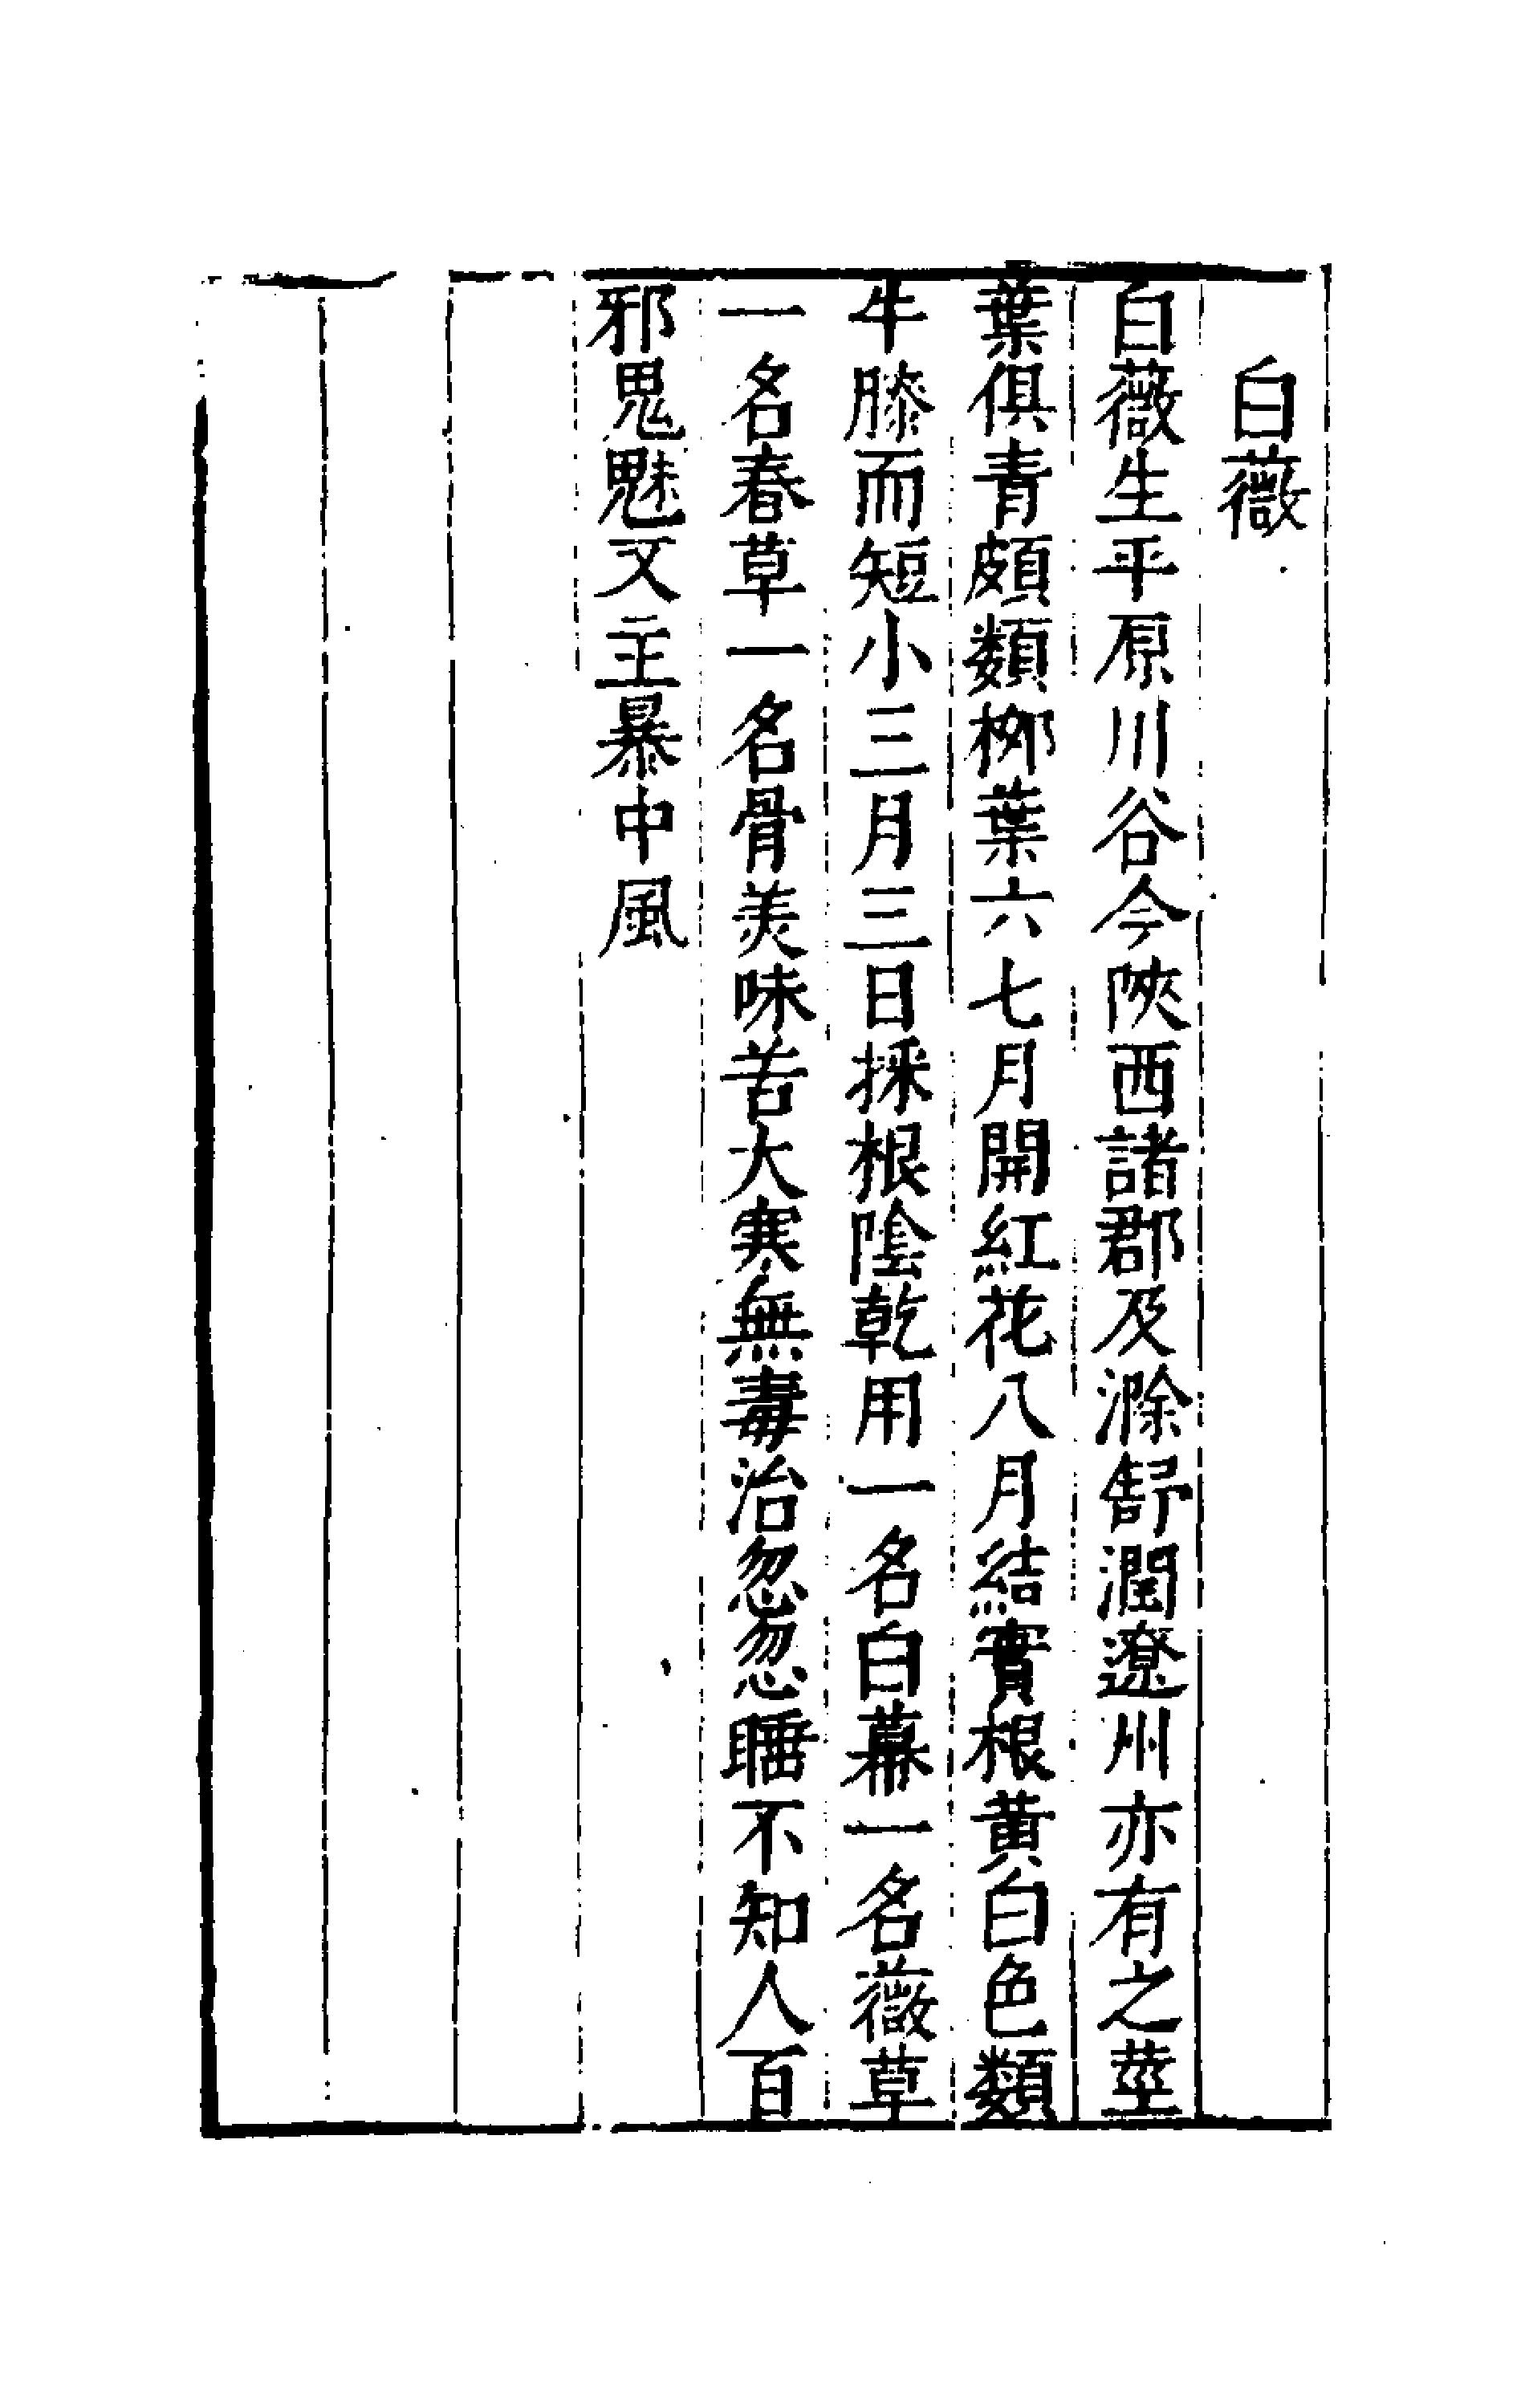 白薇
白薇生平原川谷今陝西諸郡及滁舒潤遼州亦有之莖
葉俱青頗類栁葉六七月開紅花八月結實根黃白色類
牛膝而短小三月三日採根陰乾用一名白幕一名薇草
一名春草一名骨美味苦大寒無毒治忽忽睡不知人百
邪鬼魅又主暴中風